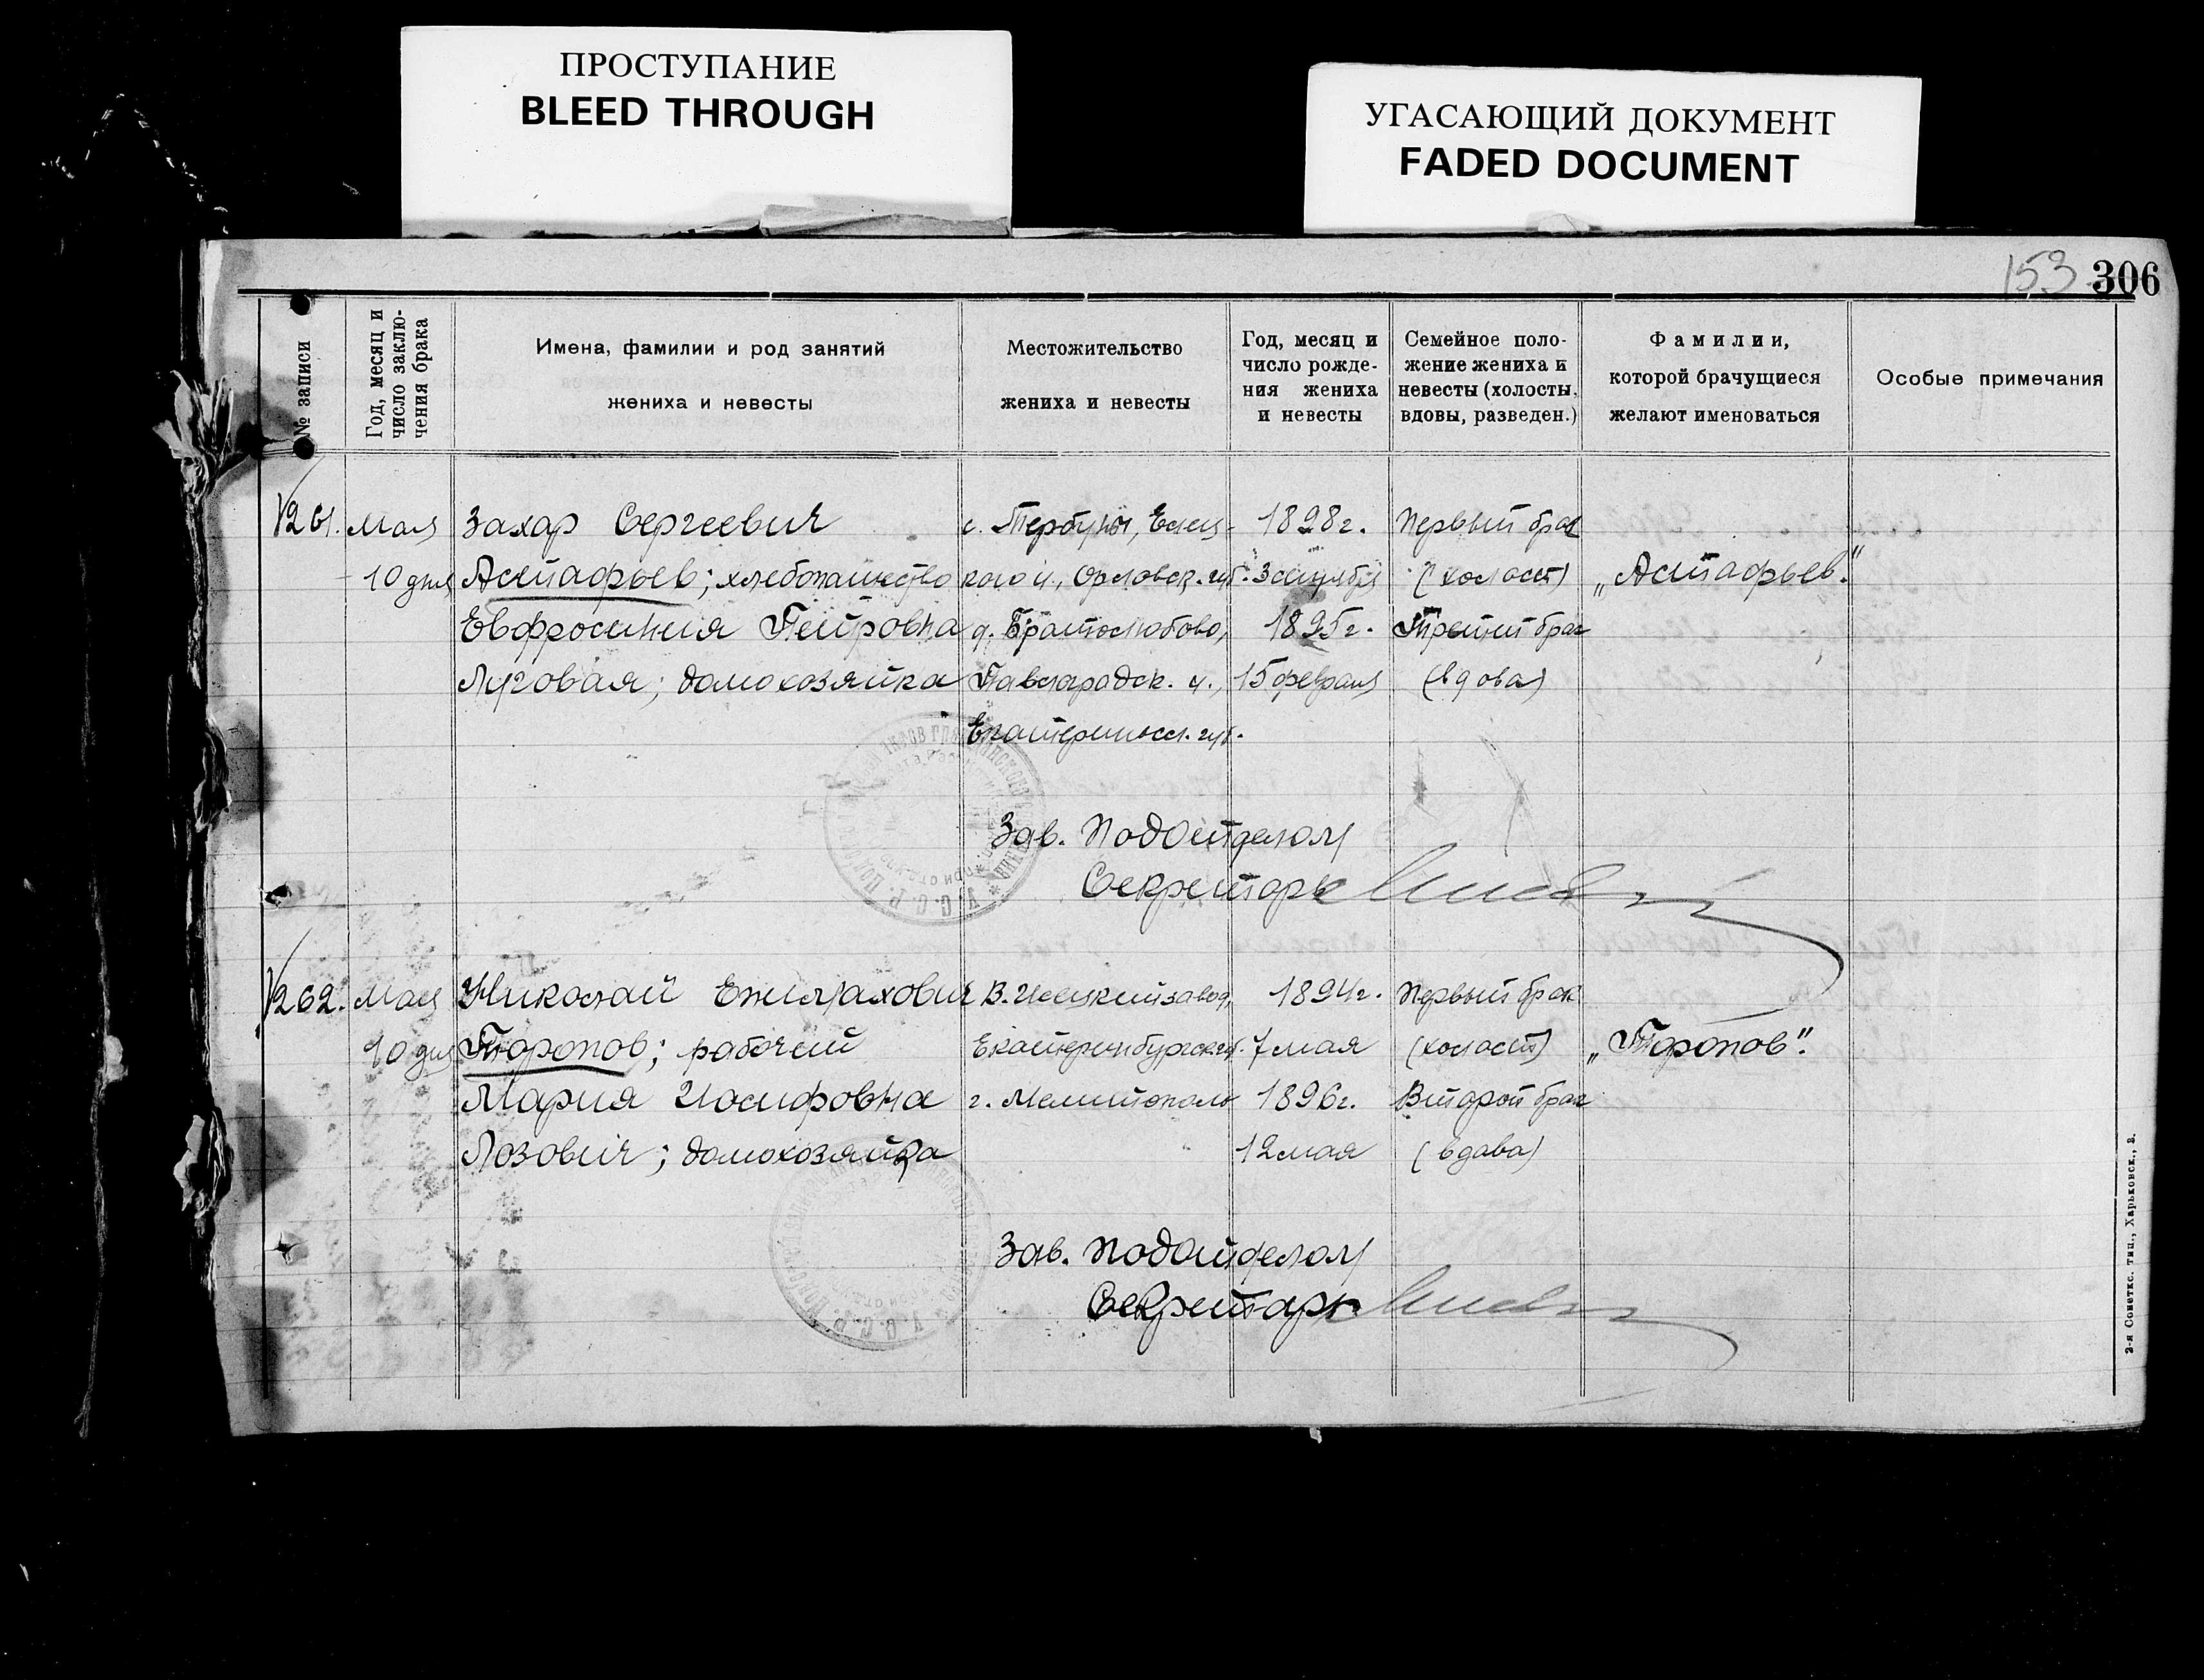 ПРОСТУПАНИЕ
BLEED THROUGH
УГАСАЮЩИЙ ДОКУМЕНТ
FADED DOCUMENT
153 306
№ записи
Год, месяц и
число заклю-
чения брака
Имена, фамилии и род занятий
жениха и невесты
Местожительство
жениха и невесты
Год, месяц и
число рожде-
ния жениха
и невесты
Семейное поло-
жение жениха и
невесты (холосты,
вдовы, разведен.)
Фамилии,
которой брачущиеся
желают именоваться
Особые примечания
261. мая Захар Сергеевич с. Тербуны, Елец- 1898г. Первый брак
10 дня Астафьев; хлебопашество кого у., Орловск. губ. 3 сентября (холост) „Астафьев."
Евфросиния Петровна д. Братолюбово, 1895г. Третий брак
Луговая; домохозяйка Павлоградск. у., 15 февраля (вдова)
Екатериносл. губ.
Зав. Подотделом
Секретарь
262. мая Николай В. завод, 1894г. Первый брак
10 дня Торопов; рабочий Екатеринбургск. губ. 7 мая (холост) „Торопов".
Мария Иосифовна г. Мелитополь 1896г. Второй брак
Лозович; домохозяйка 12 мая (вдава)
Зав. Подотделом
Секретарь
2-я Советск. тип., Харьковск., 3.